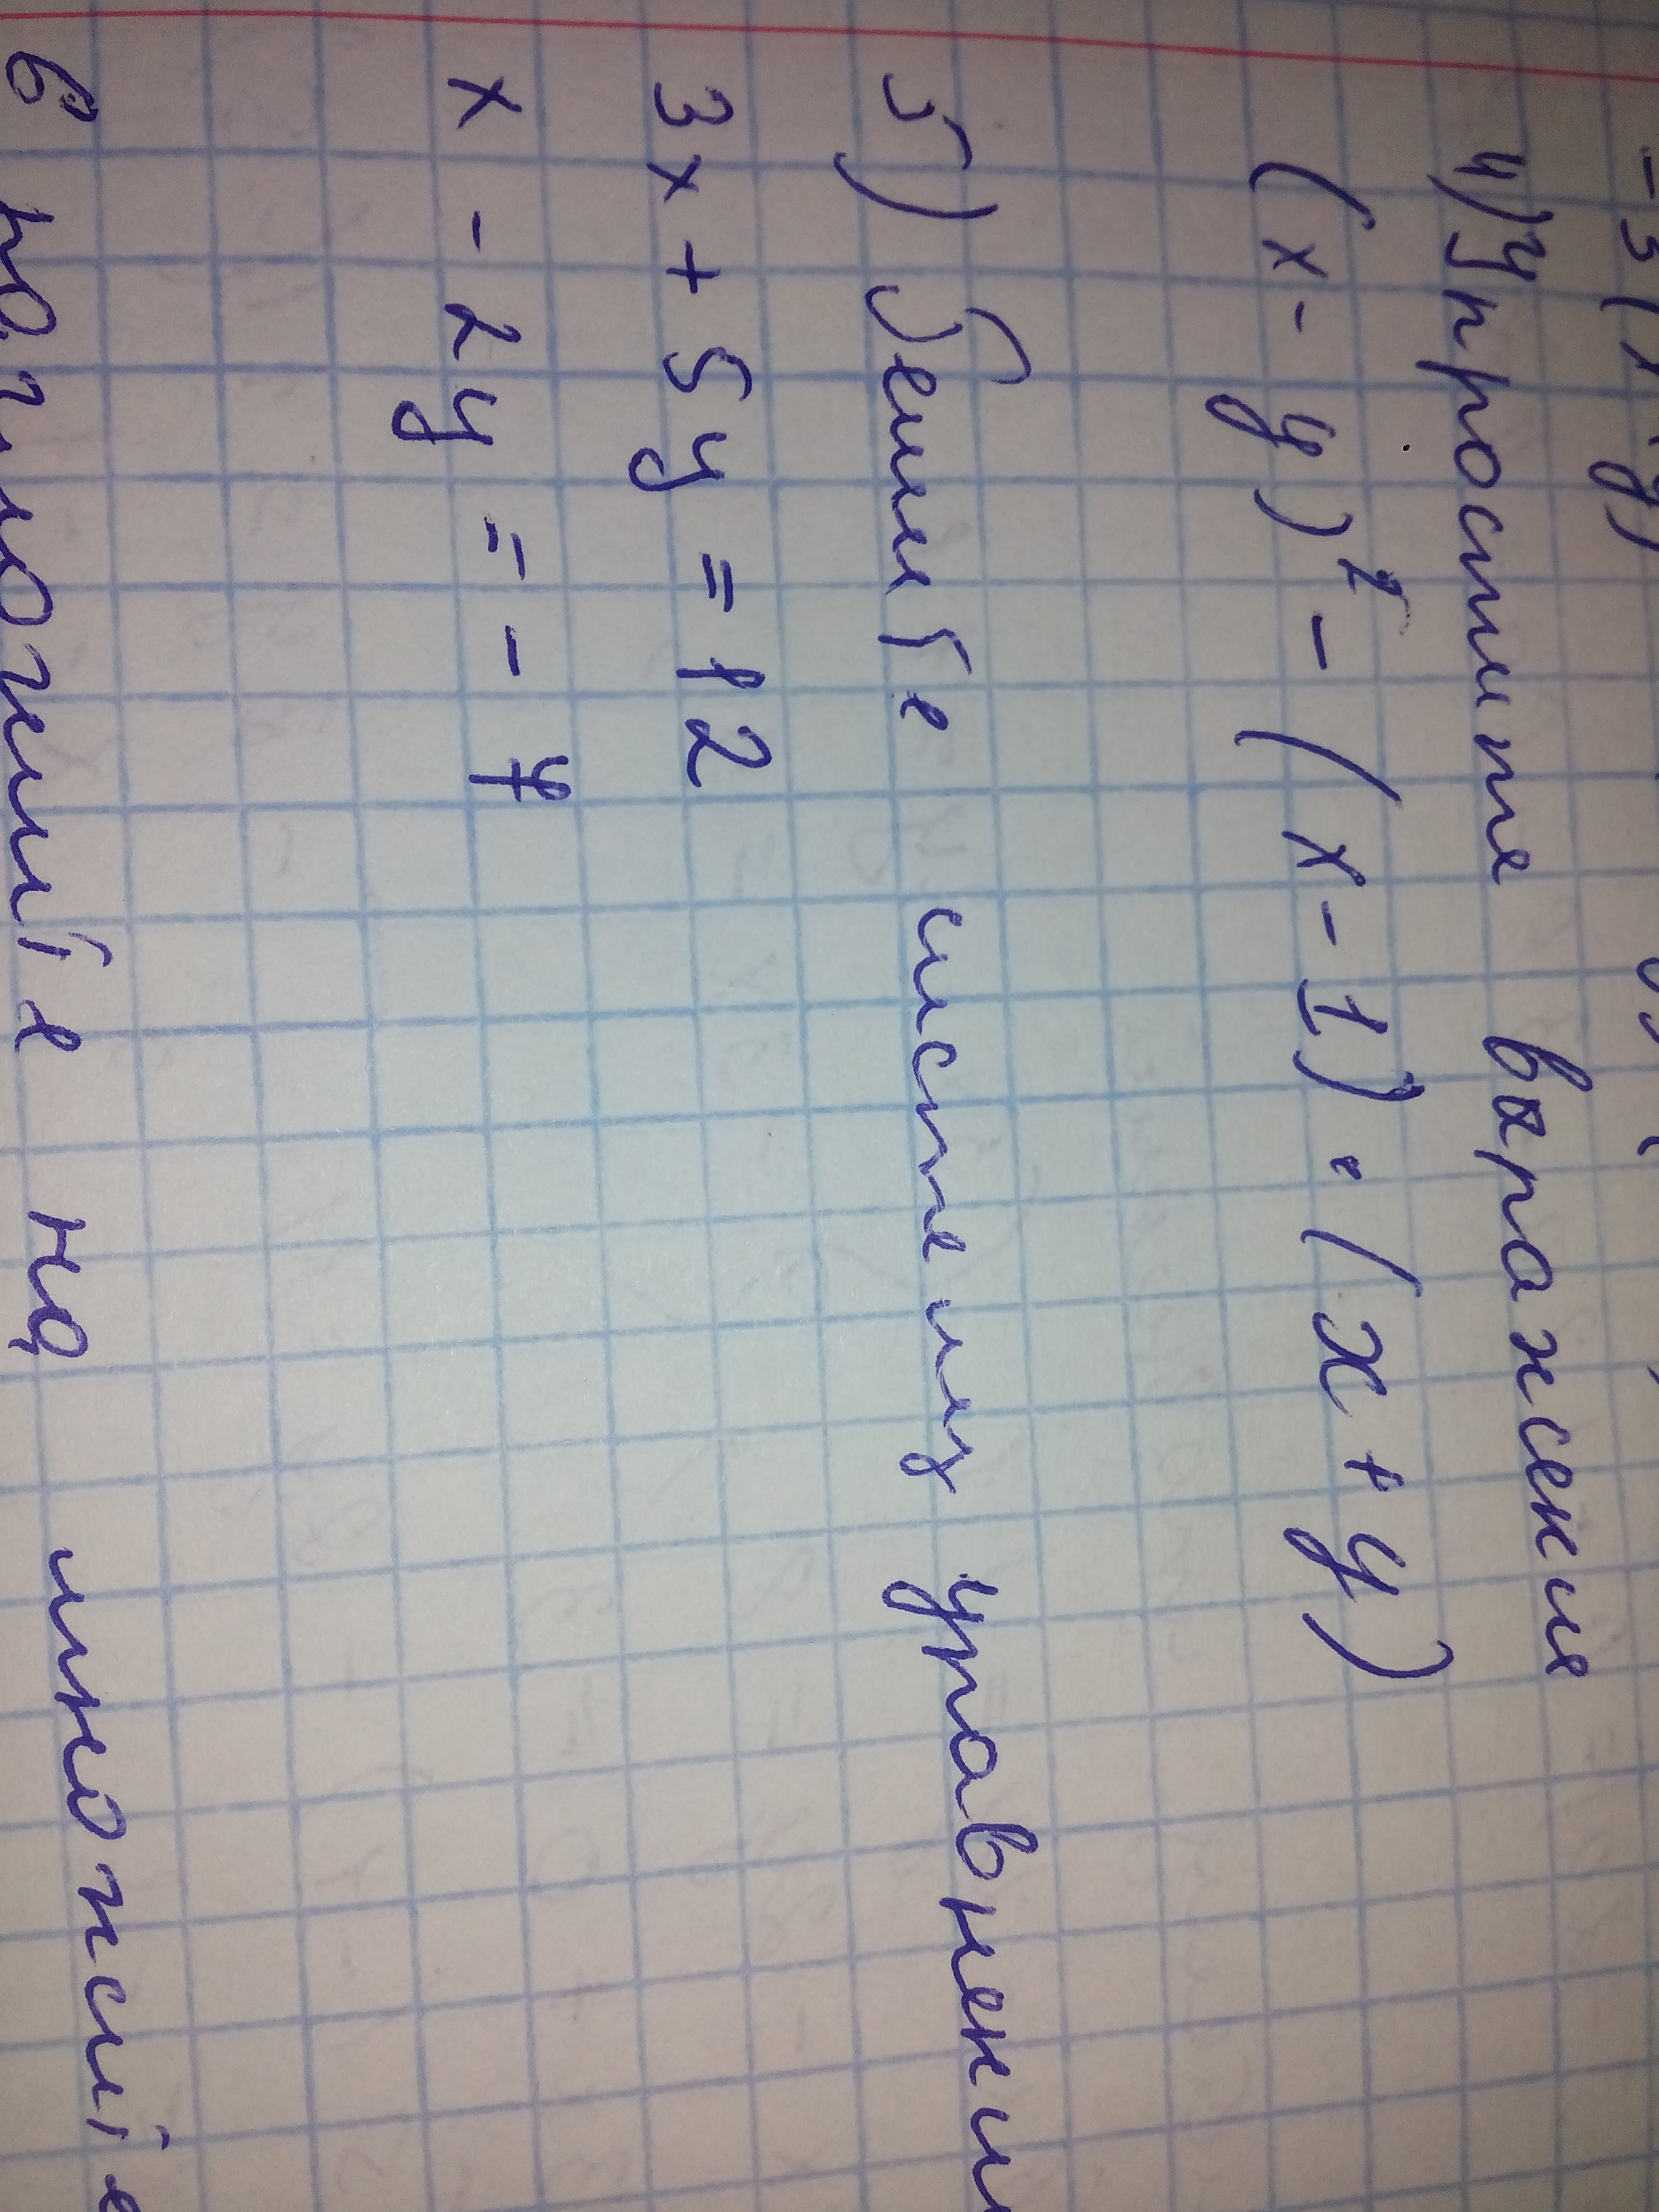 4) Упростите выражение
(x - y)² - (x - 1) · (x + y)
5) Решите систему уравнени
3x + 5y = 12
x - 2y = - 7
6 на множите